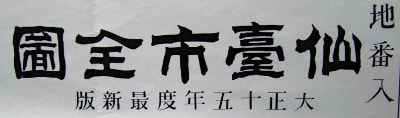 地番入
仙臺市全圖
大正十五年度最新版